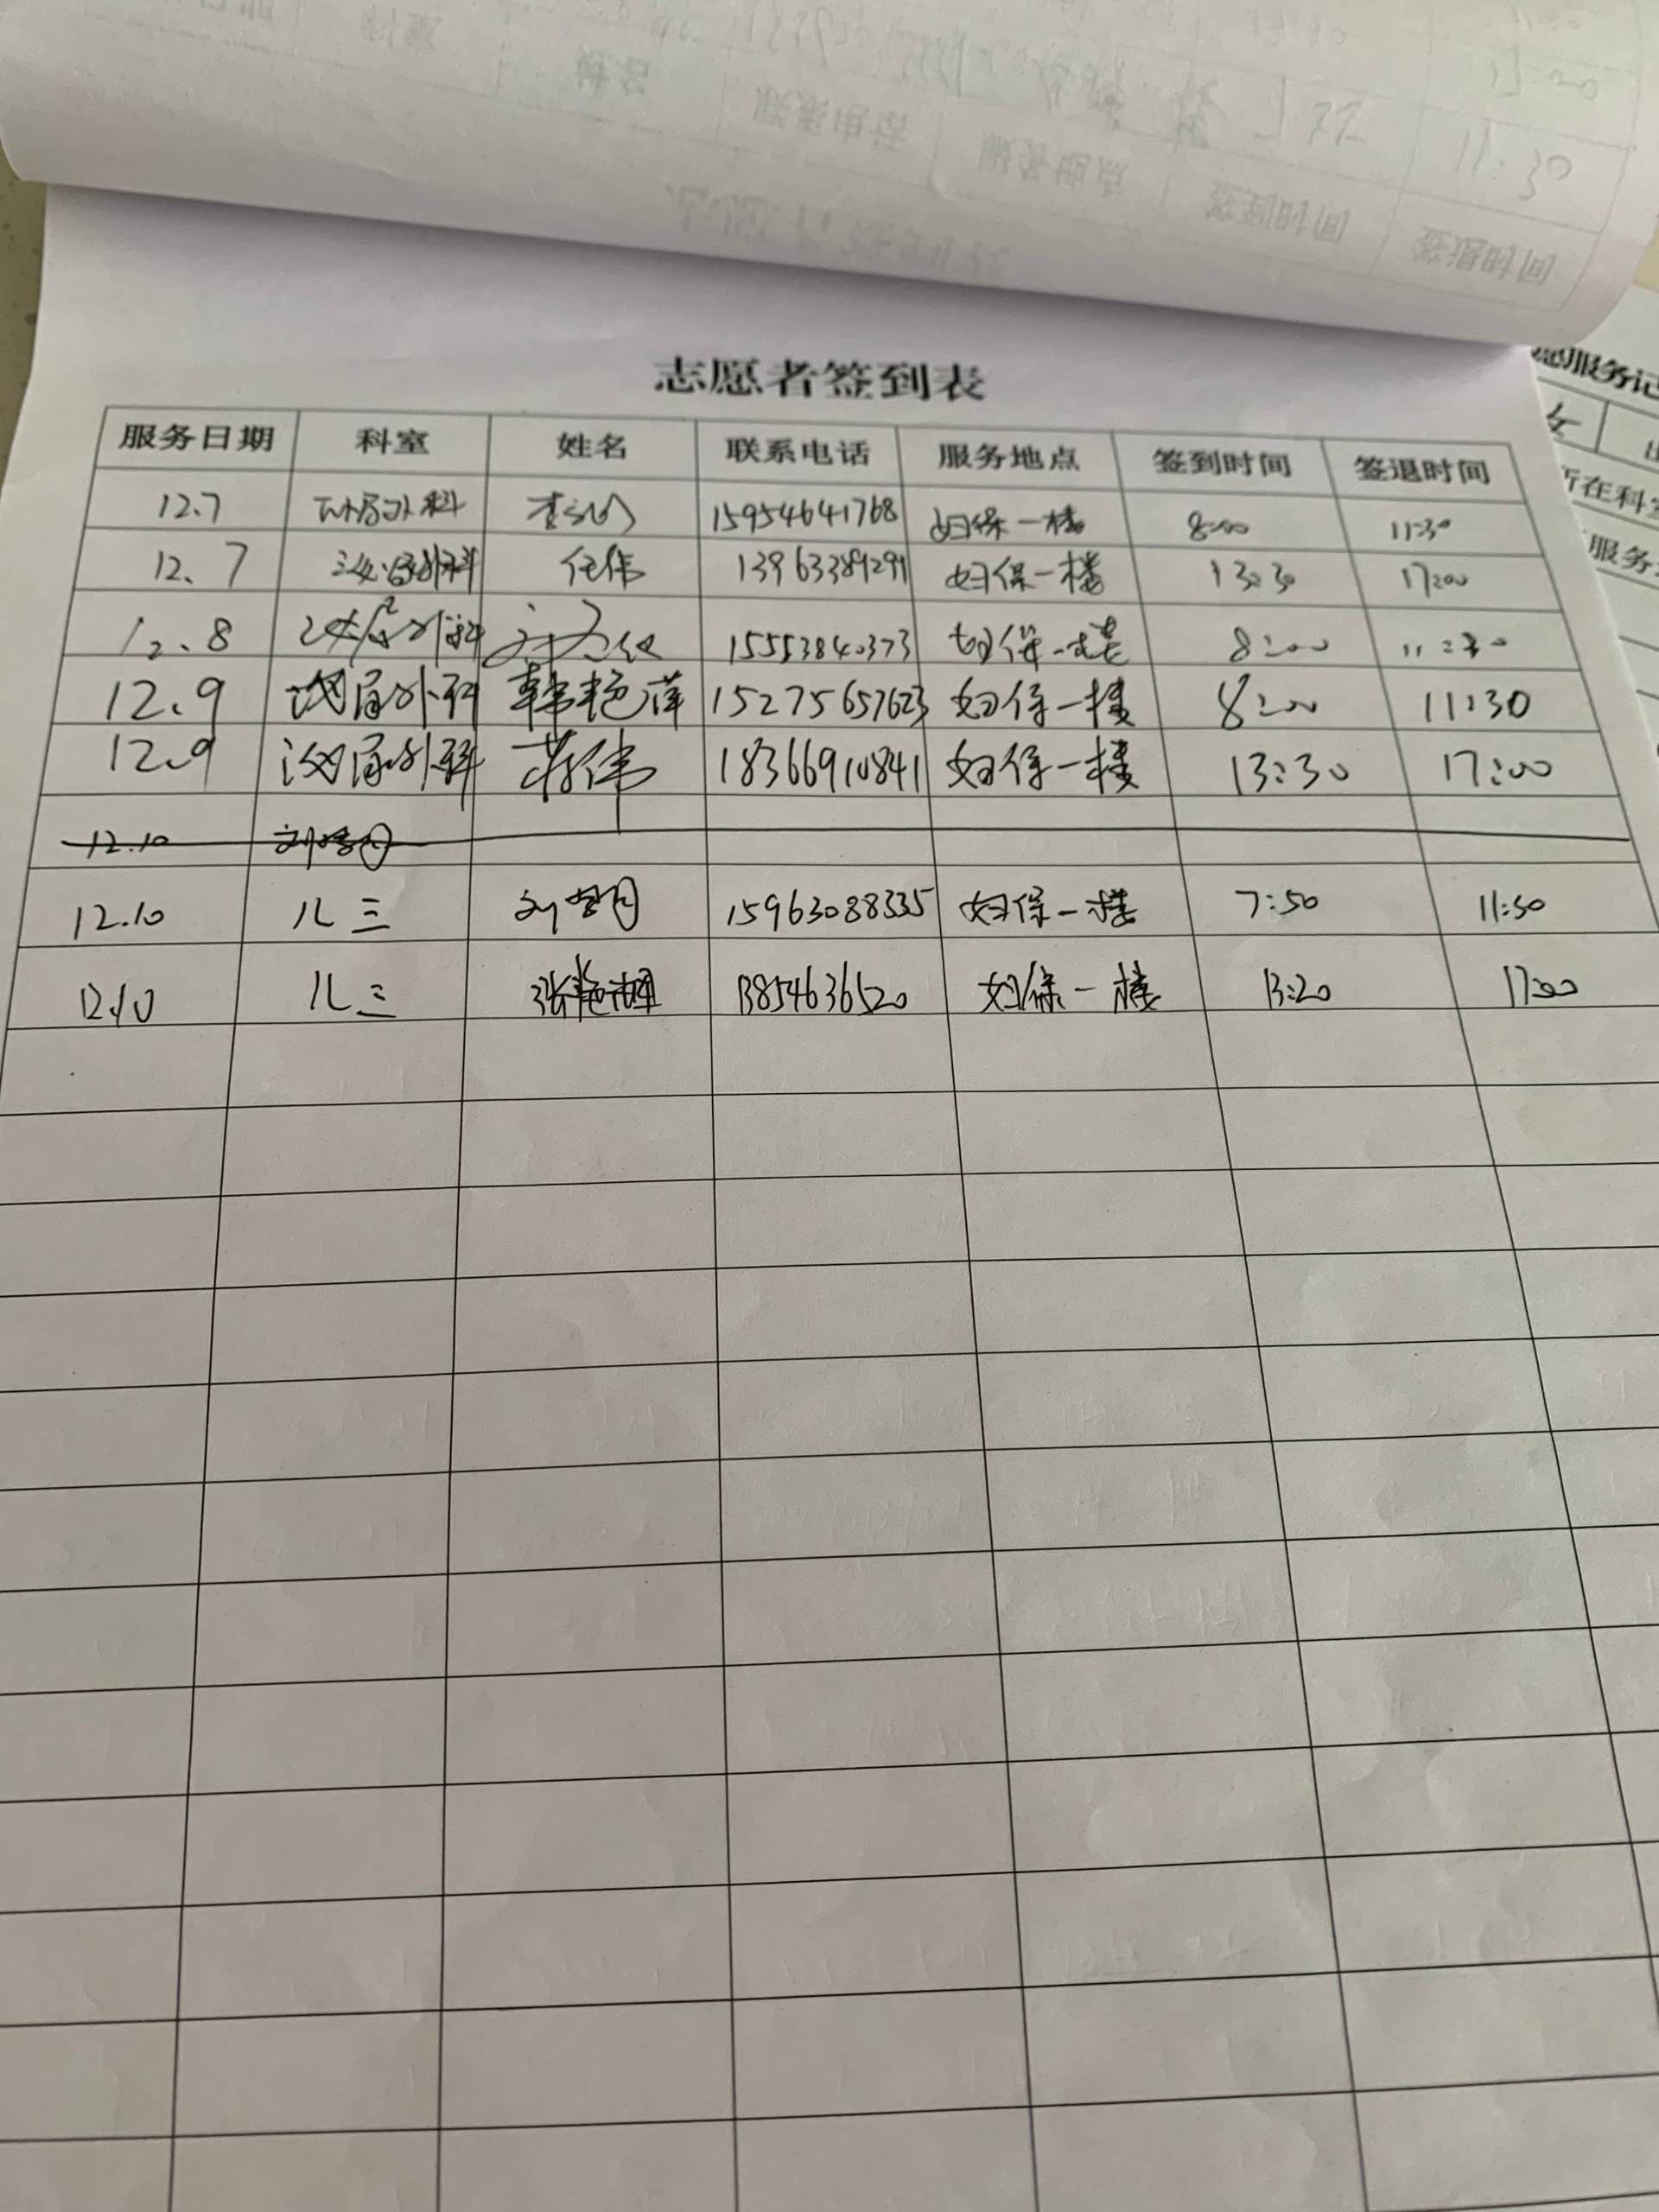 志愿者签到表
服务日期 科室 姓名 联系电话 服务地点 签到时间 签退时间
12.7 泌尿外科 15954641768 妇保一楼 8:00 11:30
12.7 泌尿外科 任伟 13963389299 妇保一楼 13:30 17:00
12.8 泌尿外科 15553840373 妇保一楼 8:00 11:30
12.9 泌尿外科 韩艳萍 15275657623 妇保一楼 8:00 11:30
12.9 泌尿外科 蒋伟 18366910841 妇保一楼 13:30 17:00
12.10
12.10 儿三 15963088335 妇保一楼 7:50 11:30
12.10 儿三 13854636520 妇保一楼 13:20 17:00
愿服务记
女
所在科室
服务